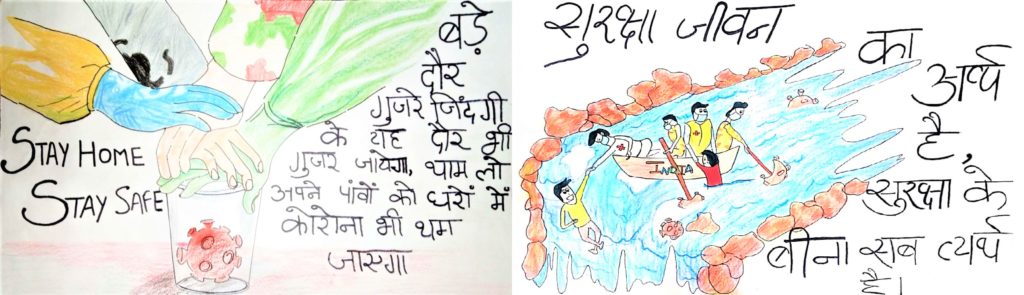 बड़े
दौर
गुजरे जिंदगी
के यह दौर भी
गुजर जायेगा, थाम लो
अपने पांवों को घरों में
कोरोना भी थम
जाएगा
STAY HOME
STAY SAFE
सुरक्षा जीवन
का
अर्थ
है,
सुरक्षा के
बीना सब व्यर्थ
है।
INDIA